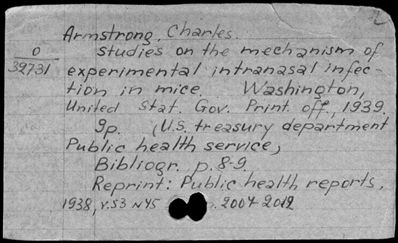 Armstrong, Charles.
0
39731
studies on the mechanism of
experimental intranasal infec-
tion in mice. Washington,
United Stat. Gov. Print. off., 1939.
9p. (U.S. treasury department
Public health service)
Bibliogr. p. 8-9.
Reprint: Public health reports,
1938, v.53 N45 p. 2004-2012